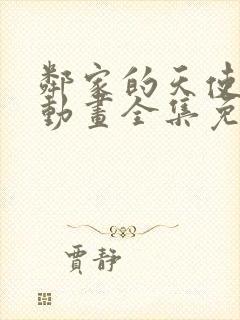 鄰家的天使
動畫全集免
賈靜